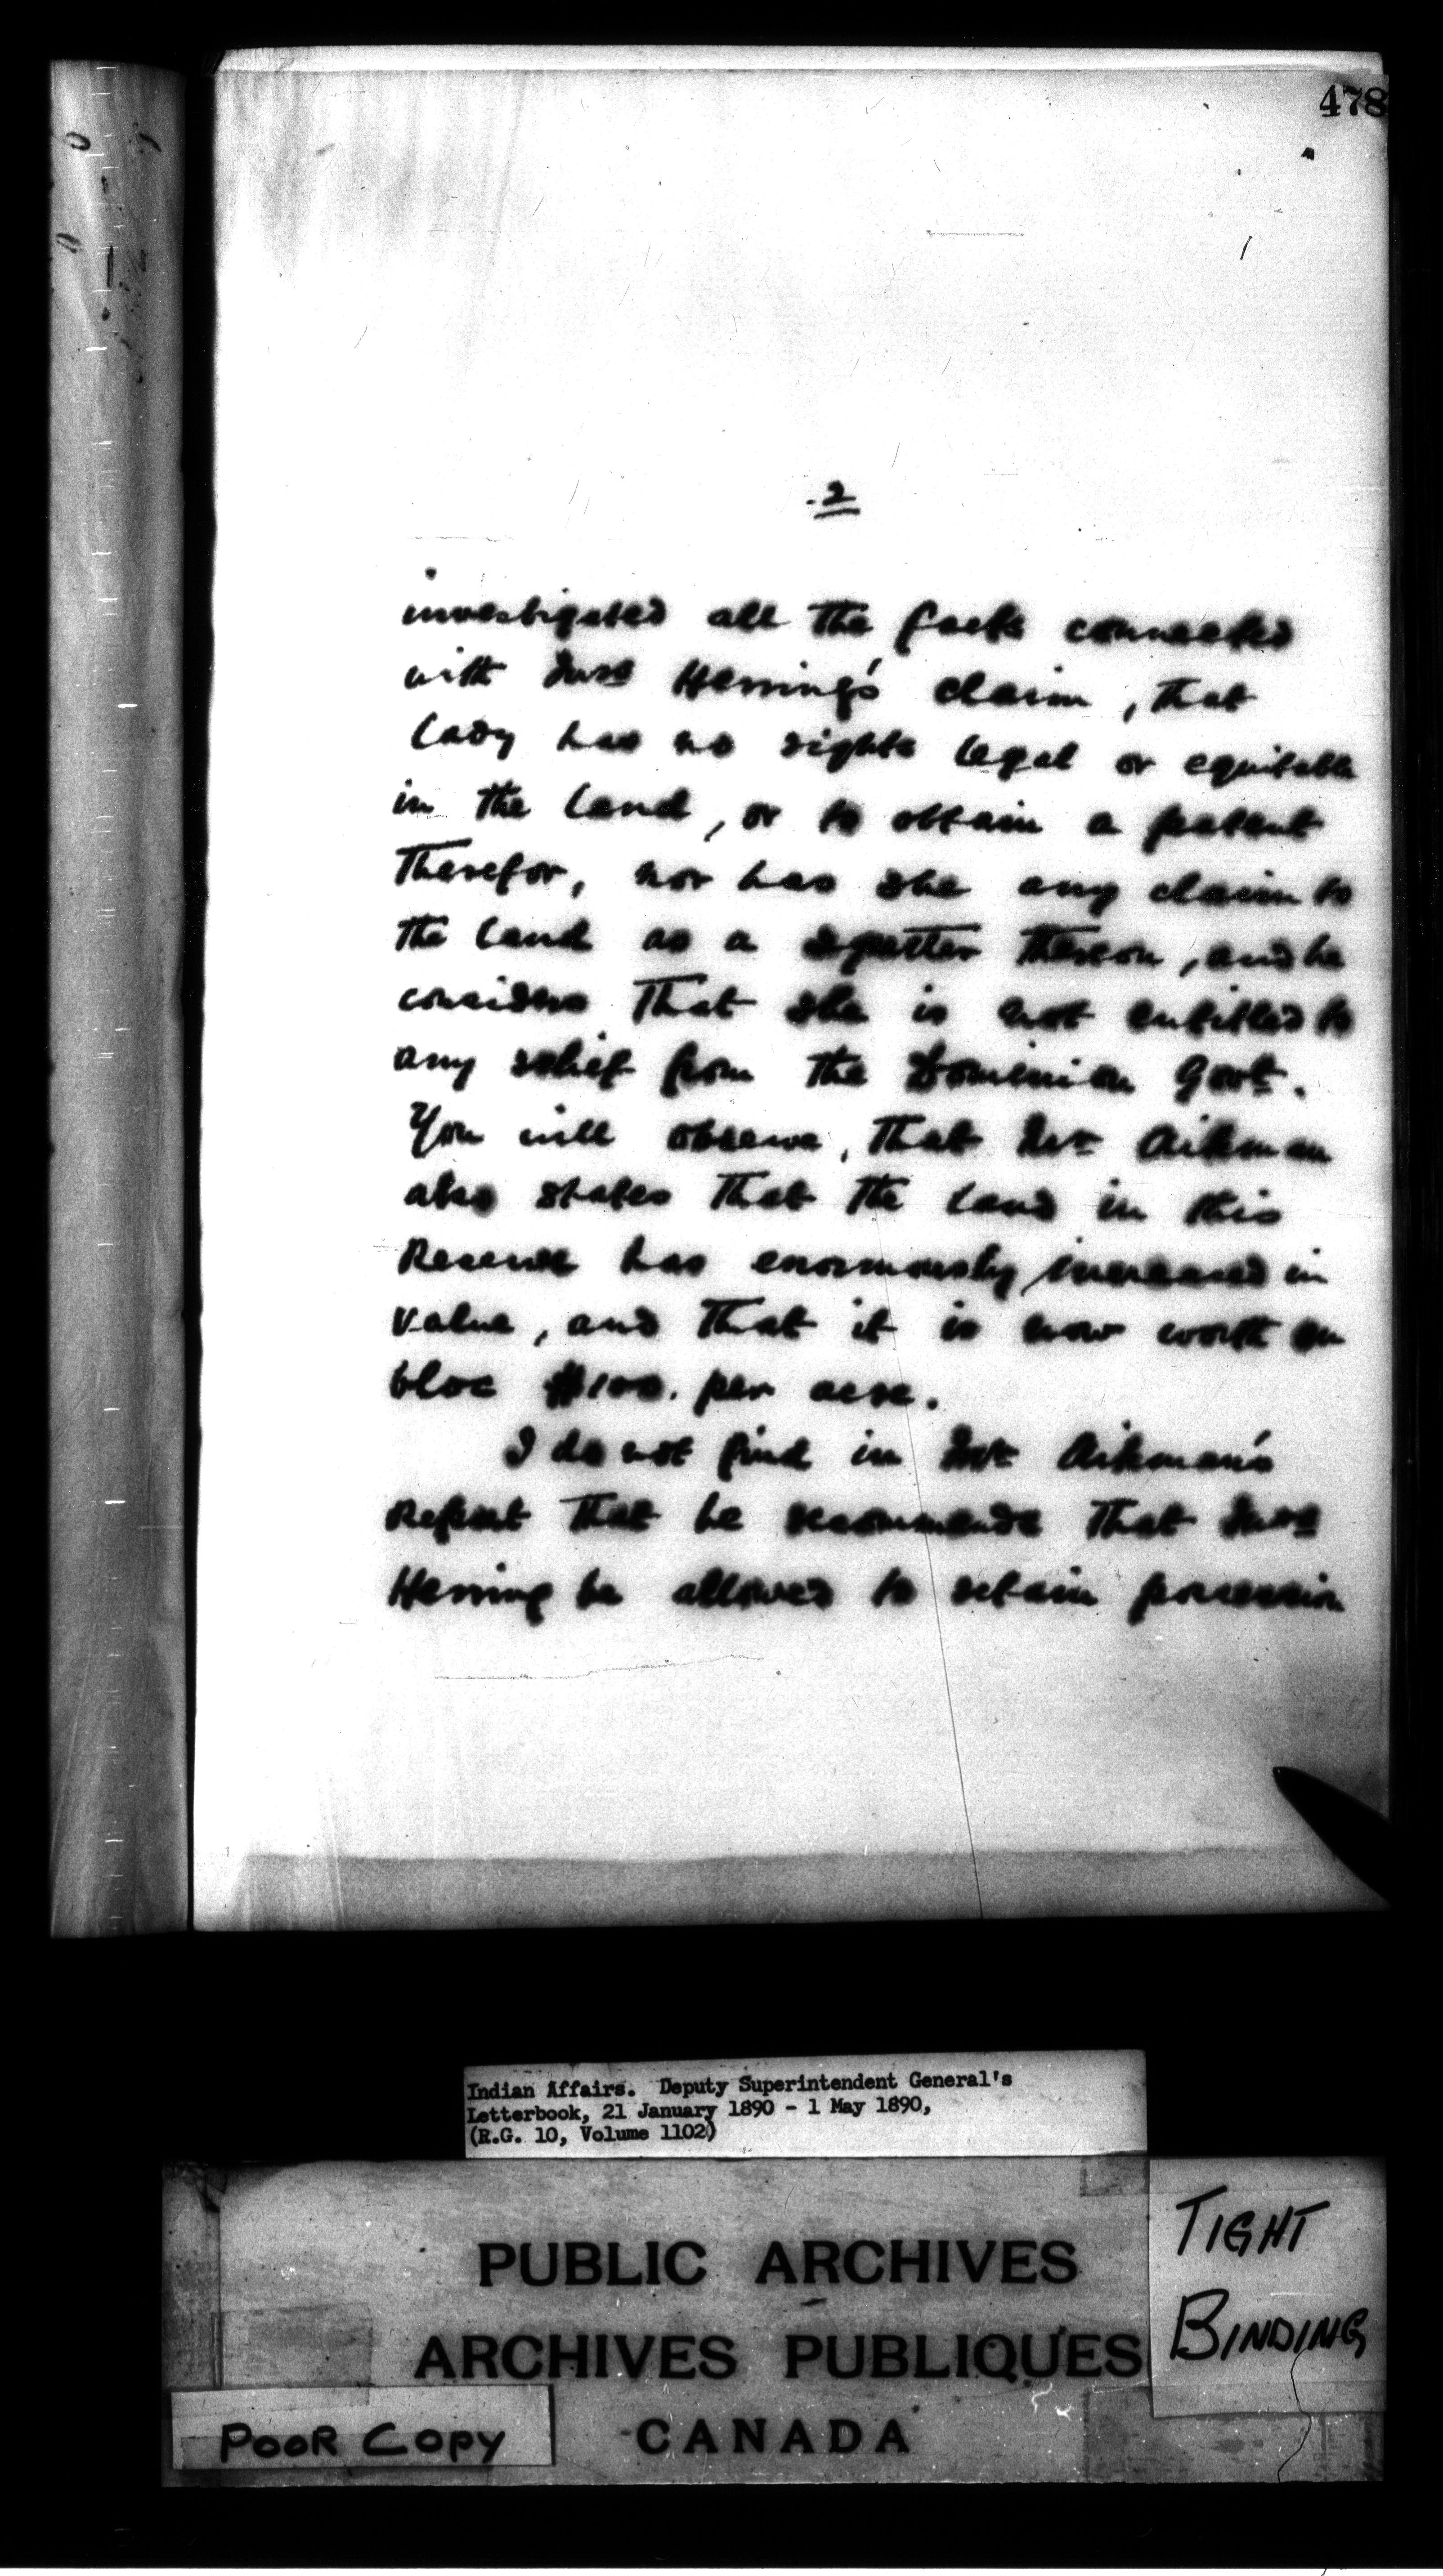 478
2
investigated all the facts connected
with Mrs Herring's claim, that
lady has no rights legal or equitable
in the land, or to obtain a patent
therefor, nor has she any claim to
the land as a squatter thereon, and he
considers that she is not entitled to
any relief from the Dominion Govt.
You will observe, that Mr Aikman
also states that the land in this
Reserve has enormously increased in
value, and that it is now worth en
bloc $100. per acre.
I do not find in Mr Aikman's
Report that he recommends that Mrs
Herring be allowed to retain possession
Indian Affairs. Deputy Superintendent General's
Letterbook, 21 January 1890 - 1 May 1890,
(R.G. 10, Volume 1102)
PUBLIC ARCHIVES
ARCHIVES PUBLIQUES
CANADA
TIGHT
BINDING
POOR COPY